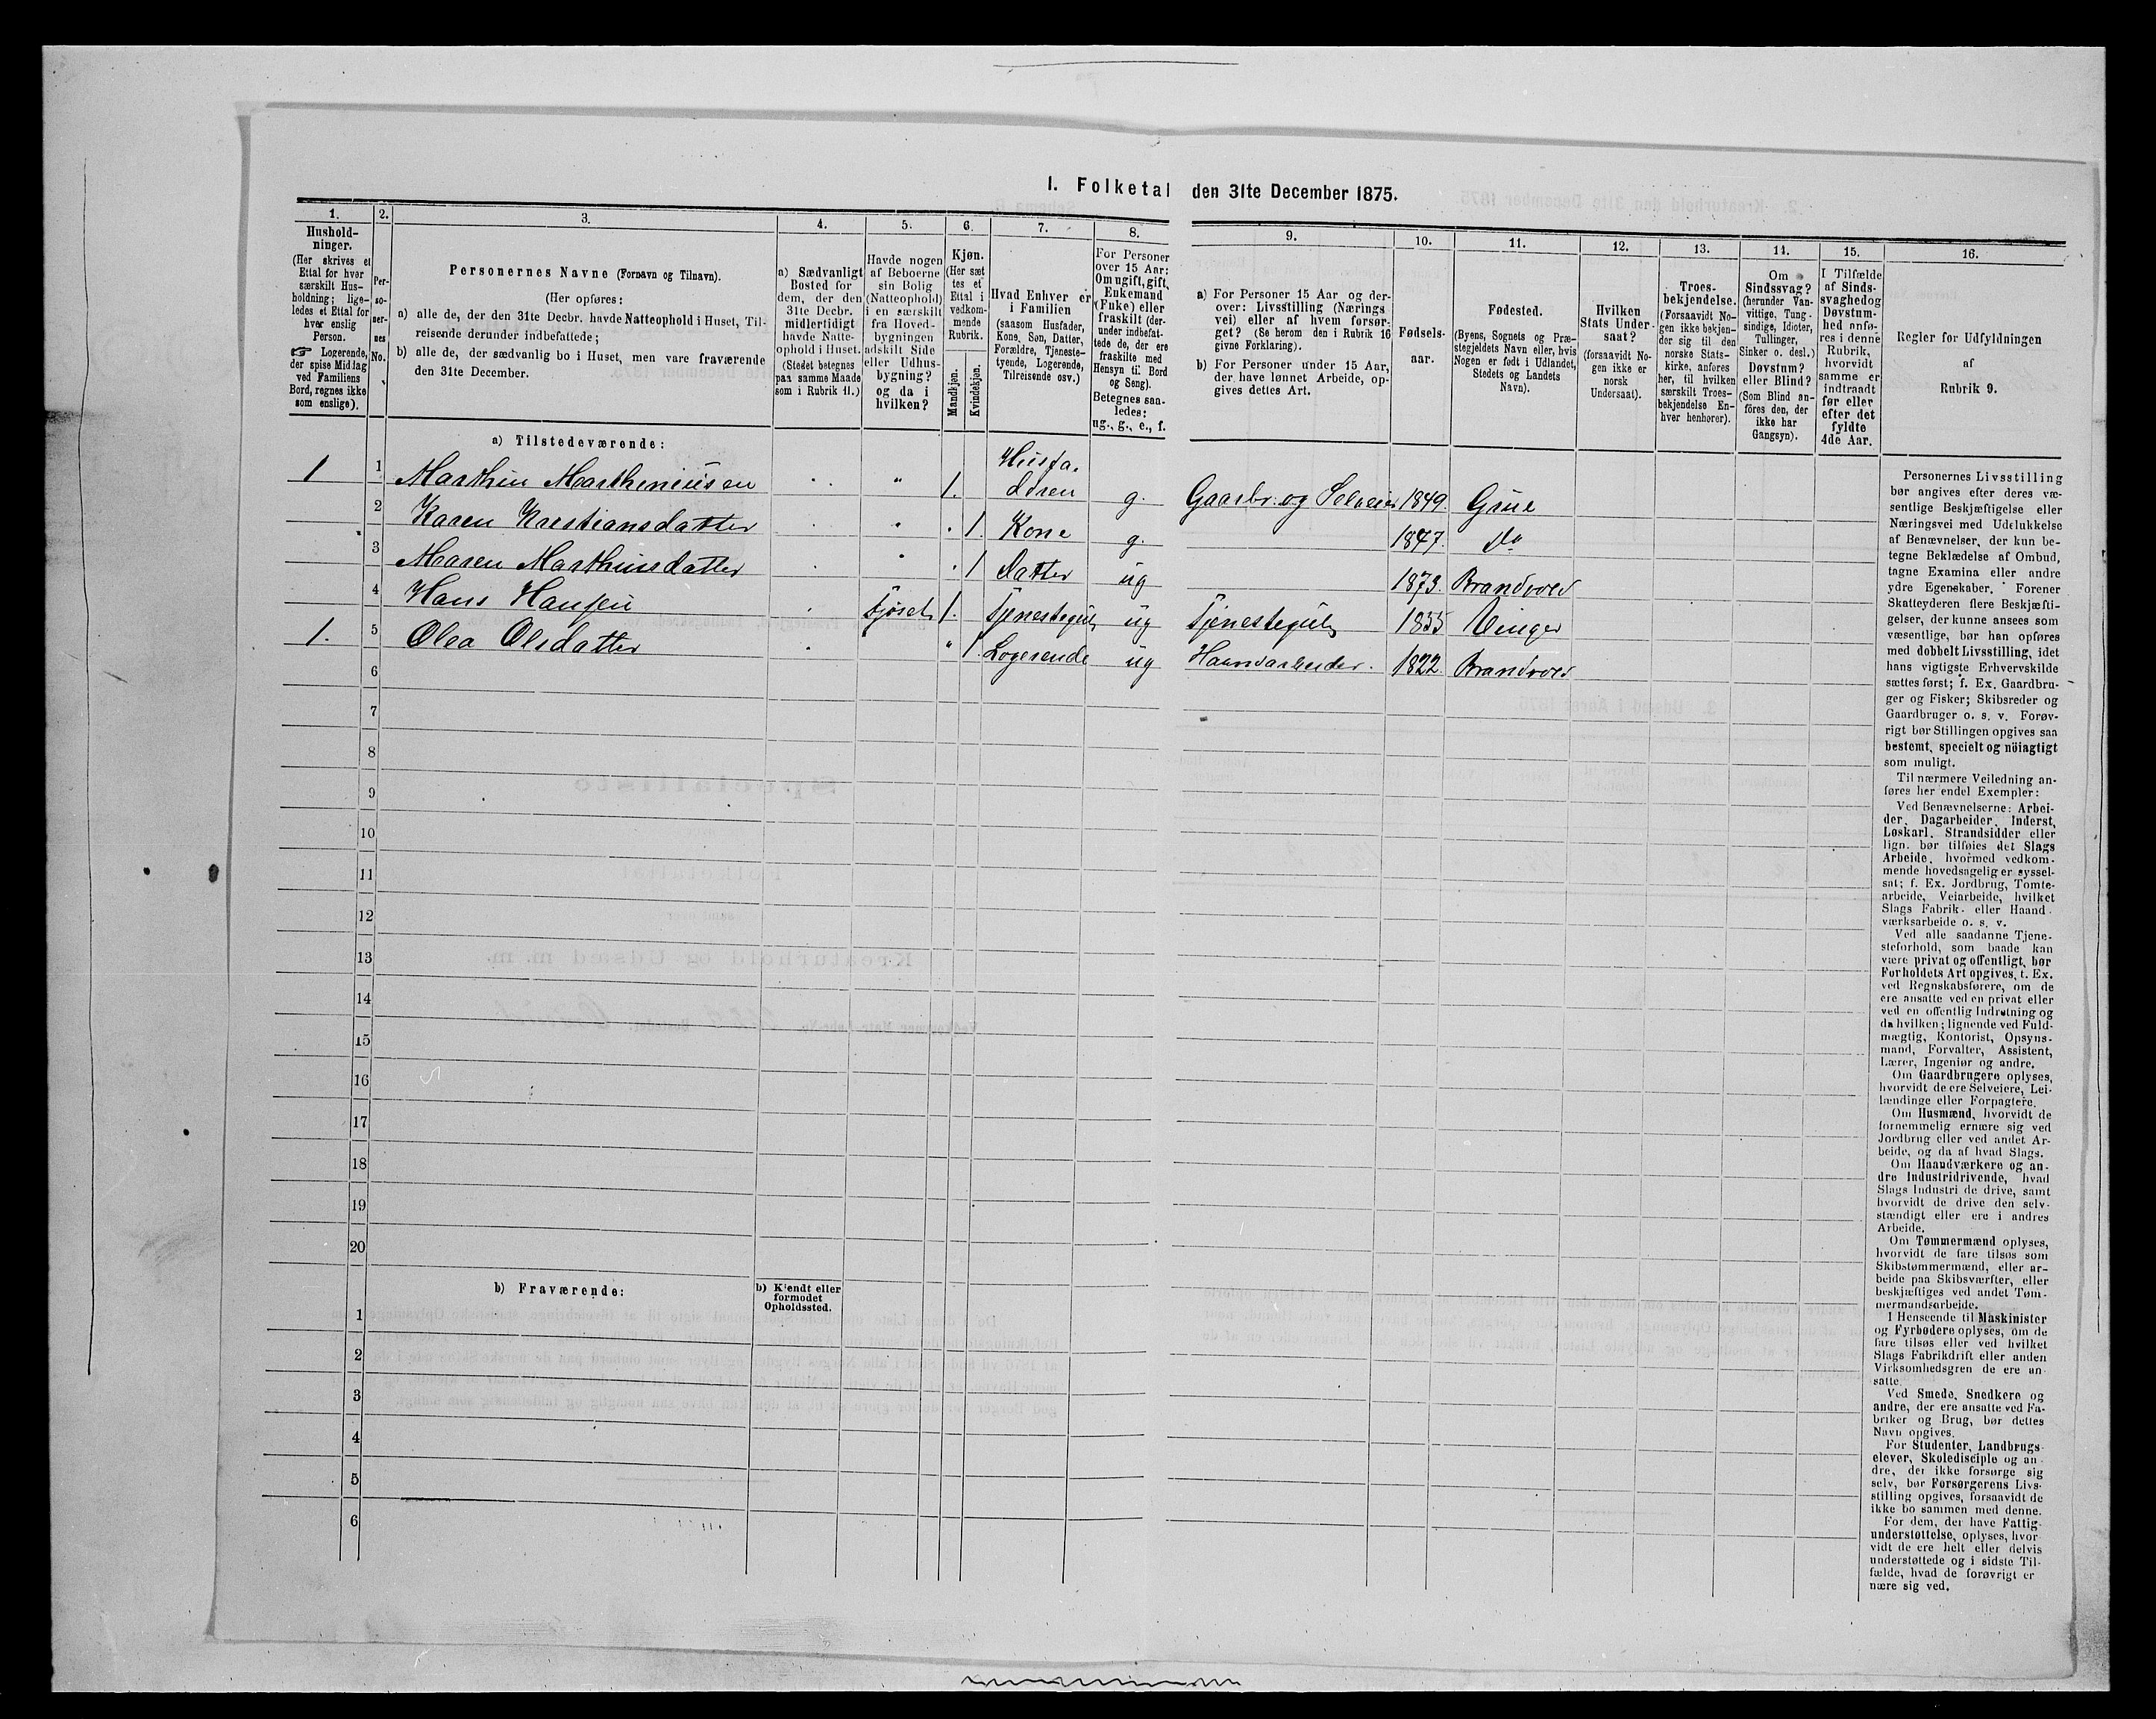 I. Folketal den 31te December 1875.
1. 2. 3. 4. 5. 6. 7. 8. 9. 10. 11. 12. 13. 14. 15. 16.
Hushold-
ninger.
(Her skrives et
Ettal for hver
særskilt Hus-
holdning; lige-
ledes et Ettal for
hver enslig
Person.
☞ Logerende,
der spise Middag
ved Familiens
Bord, regnes ikke
som enslige).
Per-
so-
ner-
nes
No.
Personernes Navne (Fornavn og Tilnavn).
(Her opføres:
a) alle de, der den 31te Decbr. havde Natteophold i Huset, Til-
reisende derunder indbefattede;
b) alle de, der sædvanlig bo i Huset, men vare fraværende
den 31te December.
a) Sædvanligt
Bosted for
dem, der den
31te Decbr.
midlertidigt
havde Natte-
ophold i Huset.
(Stedet betegnes
paa samme Maade
som i Rubrik 11.)
Havde nogen
af Beboerne
sin Bolig
(Natteophold)
i en særskilt
fra Hoved-
bygningen
adskilt Side
eller Udhus-
bygning?
og da i
hvilken?
Kjøn.
(Her sæt
tes et
Ettal i
vedkom-
mende
Rubrik.
Mandkjøn.
Kvindekjøn.
Hvad Enhver er
i Familien
(saasom Husfader,
Kone, Søn, Datter,
Forældre, Tjeneste-
tyende, Logerende,
Tilreisende osv.)
For Personer
over 15 Aar:
Om ugift, gift,
Enkemand
(Enke) eller
fraskilt (der-
under indbefat-
tede de, der ere
fraskilte med
Hensyn til Bord
og Seng).
Betegnes saa-
ledes:
ug., g., e., f.
a) For Personer 15 Aar og der-
over: Livsstilling (Nærings
vei) eller af hvem forsør-
get? (Se herom den i Rubrik 16
givne Forklaring).
b) For Personer under 15 Aar,
der have lønnet Arbeide, op-
gives dettes Art.
Fødsels-
aar.
Fødested.
(Byens, Sognets og Præ-
stegjeldets Navn eller, hvis
Nogen er født i Udlandet,
Stedets og Landets
Navn).
Hvilken
Stats Under-
saat?
(forsaavidt No-
gen ikke er
norsk
Undersaat).
Troes-
bekjendelse.
(Forsaavidt No-
gen ikke bekjen-
der sig til den
norske Stats-
kirke, anføres
her, til hvilken
særskilt Troes-
bekjendelse En-
hver henhører).
Om
Sindssvag?
(herunder Van-
vittige, Tung-
sindige, Idioter,
Tullinger,
Sinker o. desl.)
Døvstum?
eller Blind?
(Som Blind an-
føres den, der
ikke har
Gangsyn).
I Tilfælde
af Sinds-
svaghed og
Døvstum-
hed anfø-
res i denne
Rubrik,
hvorvidt
samme er
indtraadt
før eller
efter det
fyldte
4de Aar.
Regler for Udfyldningen
af
Rubrik 9.
a) Tilstedeværende:
1 1 Marthin Martheniusen " 1. Husfa-
deren g. Gaarbr. og Selveier 1849. Grue
2 Karen Krestiansdatter " 1. Kone g. 1847. do
3 Maren Marthinsdatter " 1 Datter ug 1873. Brandvold
4 Hans Hansen Fjøset 1. Tjenestegut ug Tjenestegut 1855 Vinger
1. 5 Olea Olsdatter " 1. Logerende ug Haandarbeider. 1822. Brandvold
6
7
8
9
10
11
12
13
14
15
16
17
18
19
20
b) Fraværende:
b) Kjendt eller
formodet
Opholdssted.
1
2
3
4
5
6
Personernes Livsstilling
bør angives efter deres væ-
sentlige Beskjæftigelse eller
Næringsvei med Udelukkelse
af Benævnelser, der kun be-
tegne Beklædelse af Ombud,
tagne Examina eller andre
ydre Egenskaber. Forener
Skatteyderen flere Beskjæfti-
gelser, der kunne ansees som
væsentlige, bør han opføres
med dobbelt Livsstilling, idet
hans vigtigste Erhvervskilde
sættes først; f. Ex. Gaardbru-
ger og Fisker; Skibsreder og
Gaardbruger o. s. v. Forøv-
rigt bør Stillingen opgives saa
bestemt, specielt og nöiagtigt
som muligt.
Til nærmere Veiledning an-
føres her endel Exempler:
Ved Benævnelserne: Arbei-
der, Dagarbeider, Inderst,
Løskarl, Strandsidder eller
lign. bør tilføies det Slags
Arbeide, hvormed vedkom-
mende hovedsagelig er syssel-
sat; f. Ex. Jordbrug, Tomte-
arbeide, Veiarbeide, hvilket
Slags Fabrik- eller Haand-
værksarbeide o. s. v.
Ved alle saadanne Tjene-
steforhold, som baade kan
være privat og offentligt, bør
Forholdets Art opgives, t. Ex.
ved Regnskabsførere, om de
ere ansatte ved en privat eller
ved en offentlig Indretning og
da hvilken; lignende ved Fuld-
mægtig, Kontorist, Opsyns-
mand, Forvalter, Assistent,
Lærer, Ingeniør og andre.
Om Gaardbrugere oplyses,
hvorvidt de ere Selveiere, Lei-
lændinge eller Forpagtere.
Om Husmænd, hvorvidt de
fornemmelig ernære sig ved
Jordbrug eller ved andet Ar-
beide, og da af hvad Slags.
Om Haandværkere og an-
dre Industridrivende, hvad
Slags Industri de drive, samt
hvorvidt de drive den selv-
stændigt eller ere i andres
Arbeide.
Om Tømmermænd oplyses,
hvorvidt de fare tilsøs som
Skibstømmermænd, eller ar-
beide paa Skibsværfter, eller
beskjæftiges ved andet Tøm-
mermandsarbeide.
I Henseende til Maskinister
og Fyrbødere oplyses, om de
fare tilsøs eller ved hvilket
Slags Fabrikdrift eller anden
Virksomhedsgren de ere an-
satte.
Ved Smede, Snedkere og
andre, der ere ansatte ved Fa-
briker og Brug, bør dettes
Navn opgives.
For Studenter, Landbrugs-
elever, Skoledisciple og an-
dre, der ikke forsørge sig
selv, bør Forsørgerens Livs-
stilling opgives, forsaavidt de
ikke bo sammen med denne.
For dem, der have Fattig-
understøttelse, oplyses, hvor-
vidt de ere helt eller delvis
understøttede og i sidste Til-
fælde, hvad de forøvrigt er
nære sig ved.